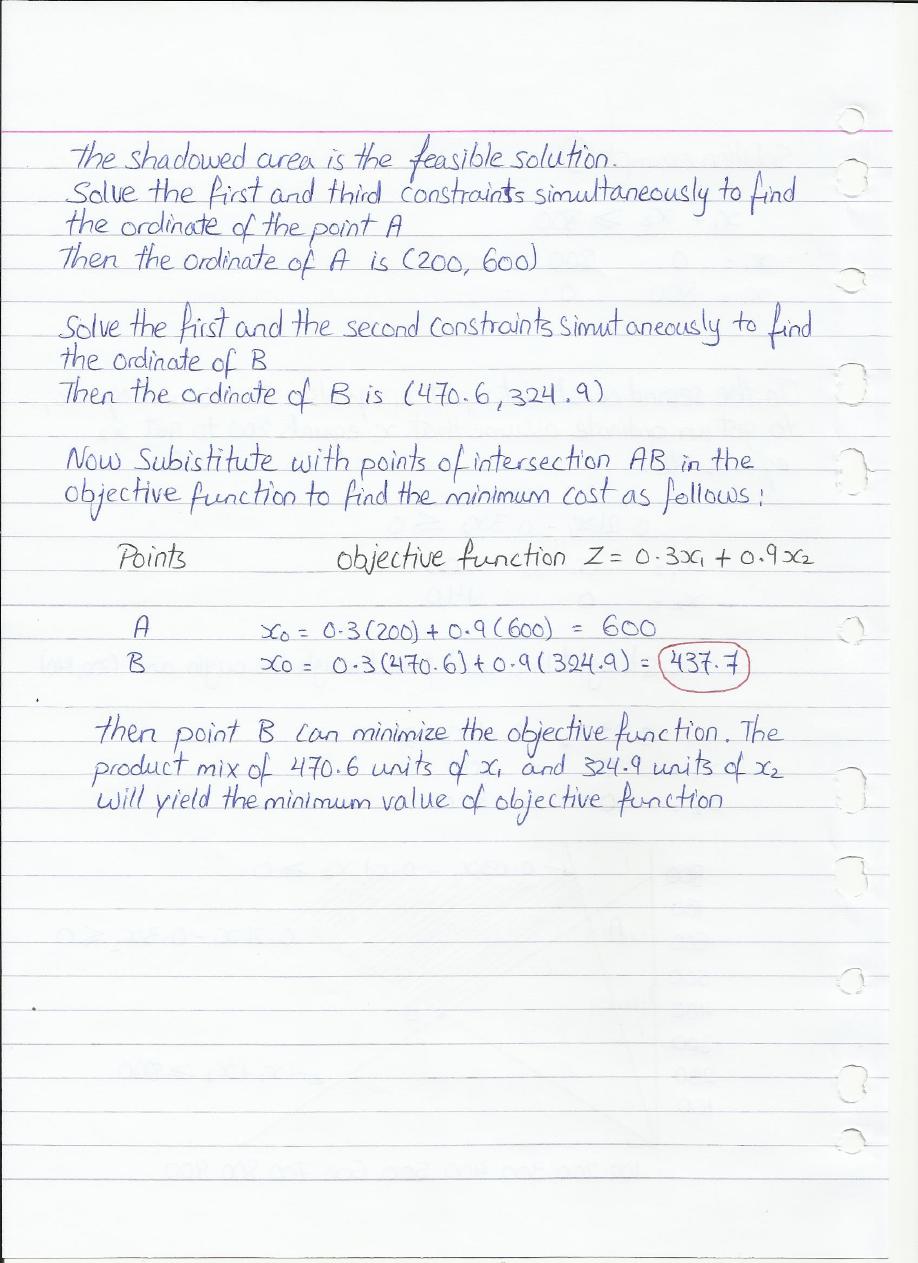 The shadowed area is the feasible solution.
Solve the first and third constraints simultaneously to find
the ordinate of the point A
Then the ordinate of A is (200, 600)
Solve the first and the second constraints simutaneously to find
the ordinate of B
Then the ordinate of B is (470.6, 324.9)
Now Subistitute with points of intersection AB in the
objective function to find the minimum cost as follows:
Points objective function Z = 0.3x₁ + 0.9x₂
A x₀ = 0.3(200) + 0.9(600) = 600
B x₀ = 0.3(470.6) + 0.9(324.9) = 437.7
then point B can minimize the objective function. The
product mix of 470.6 units of x₁ and 324.9 units of x₂
will yield the minimum value of objective function